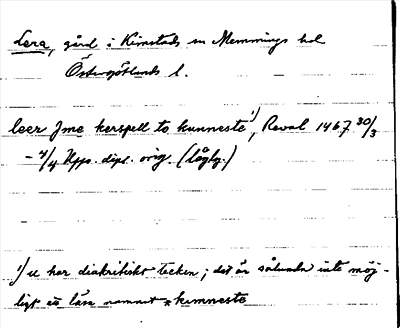 Lera, gård i Kimstads sn Memmings hd
Östergötlands l.
leer Jme kerspell to kunneste ¹), Reval 1467 30/3
- 4/4 Upps. dipl. orig. (lågty.)
¹) u har diakritiskt tecken; det är således inte möj-
ligt att läsa namnet *kimneste